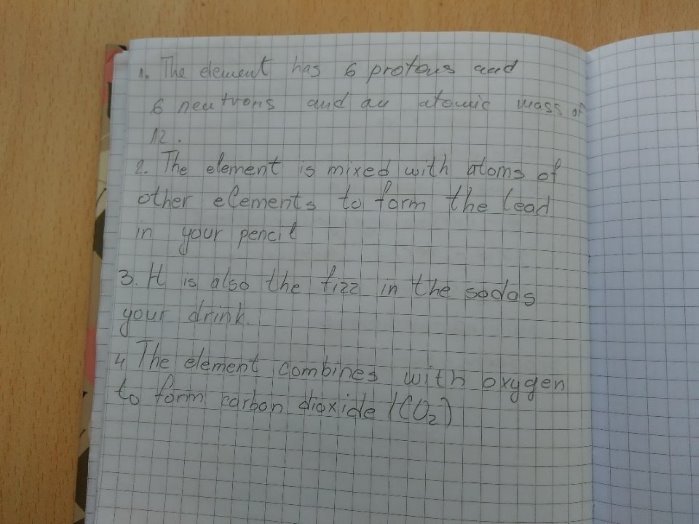 1. The element has 6 protons and
6 neutrons and an atomic mass of
12.
2. The element is mixed with atoms of
other elements to form the lead
in your pencil
3. It is also the fizz in the sodas
your drink.
4 The element combines with oxygen
to form carbon dioxide (CO₂)